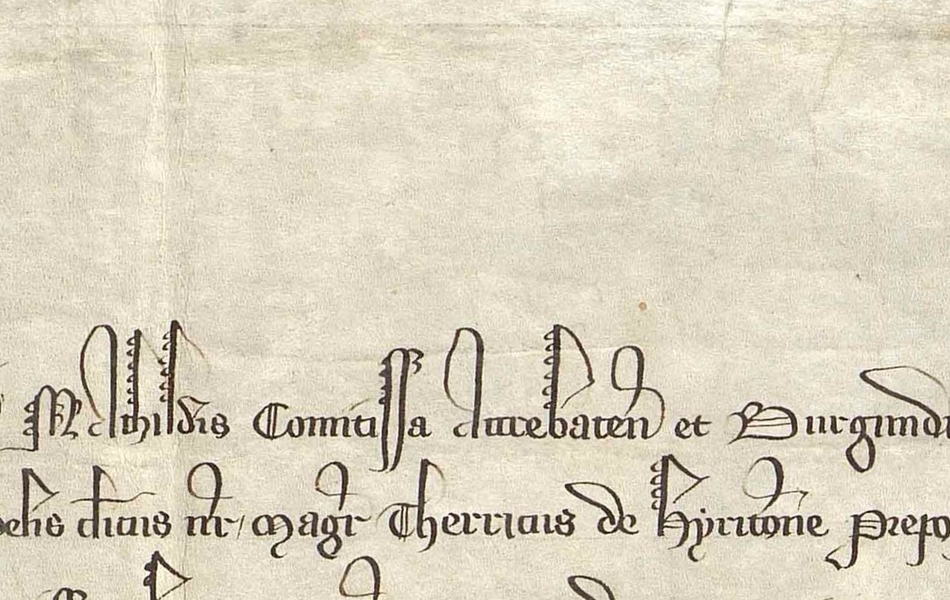 Mathildis Comitissa Attrebaten et Burgundi
delis clicus nr magr Therricus de Hyricone prepo